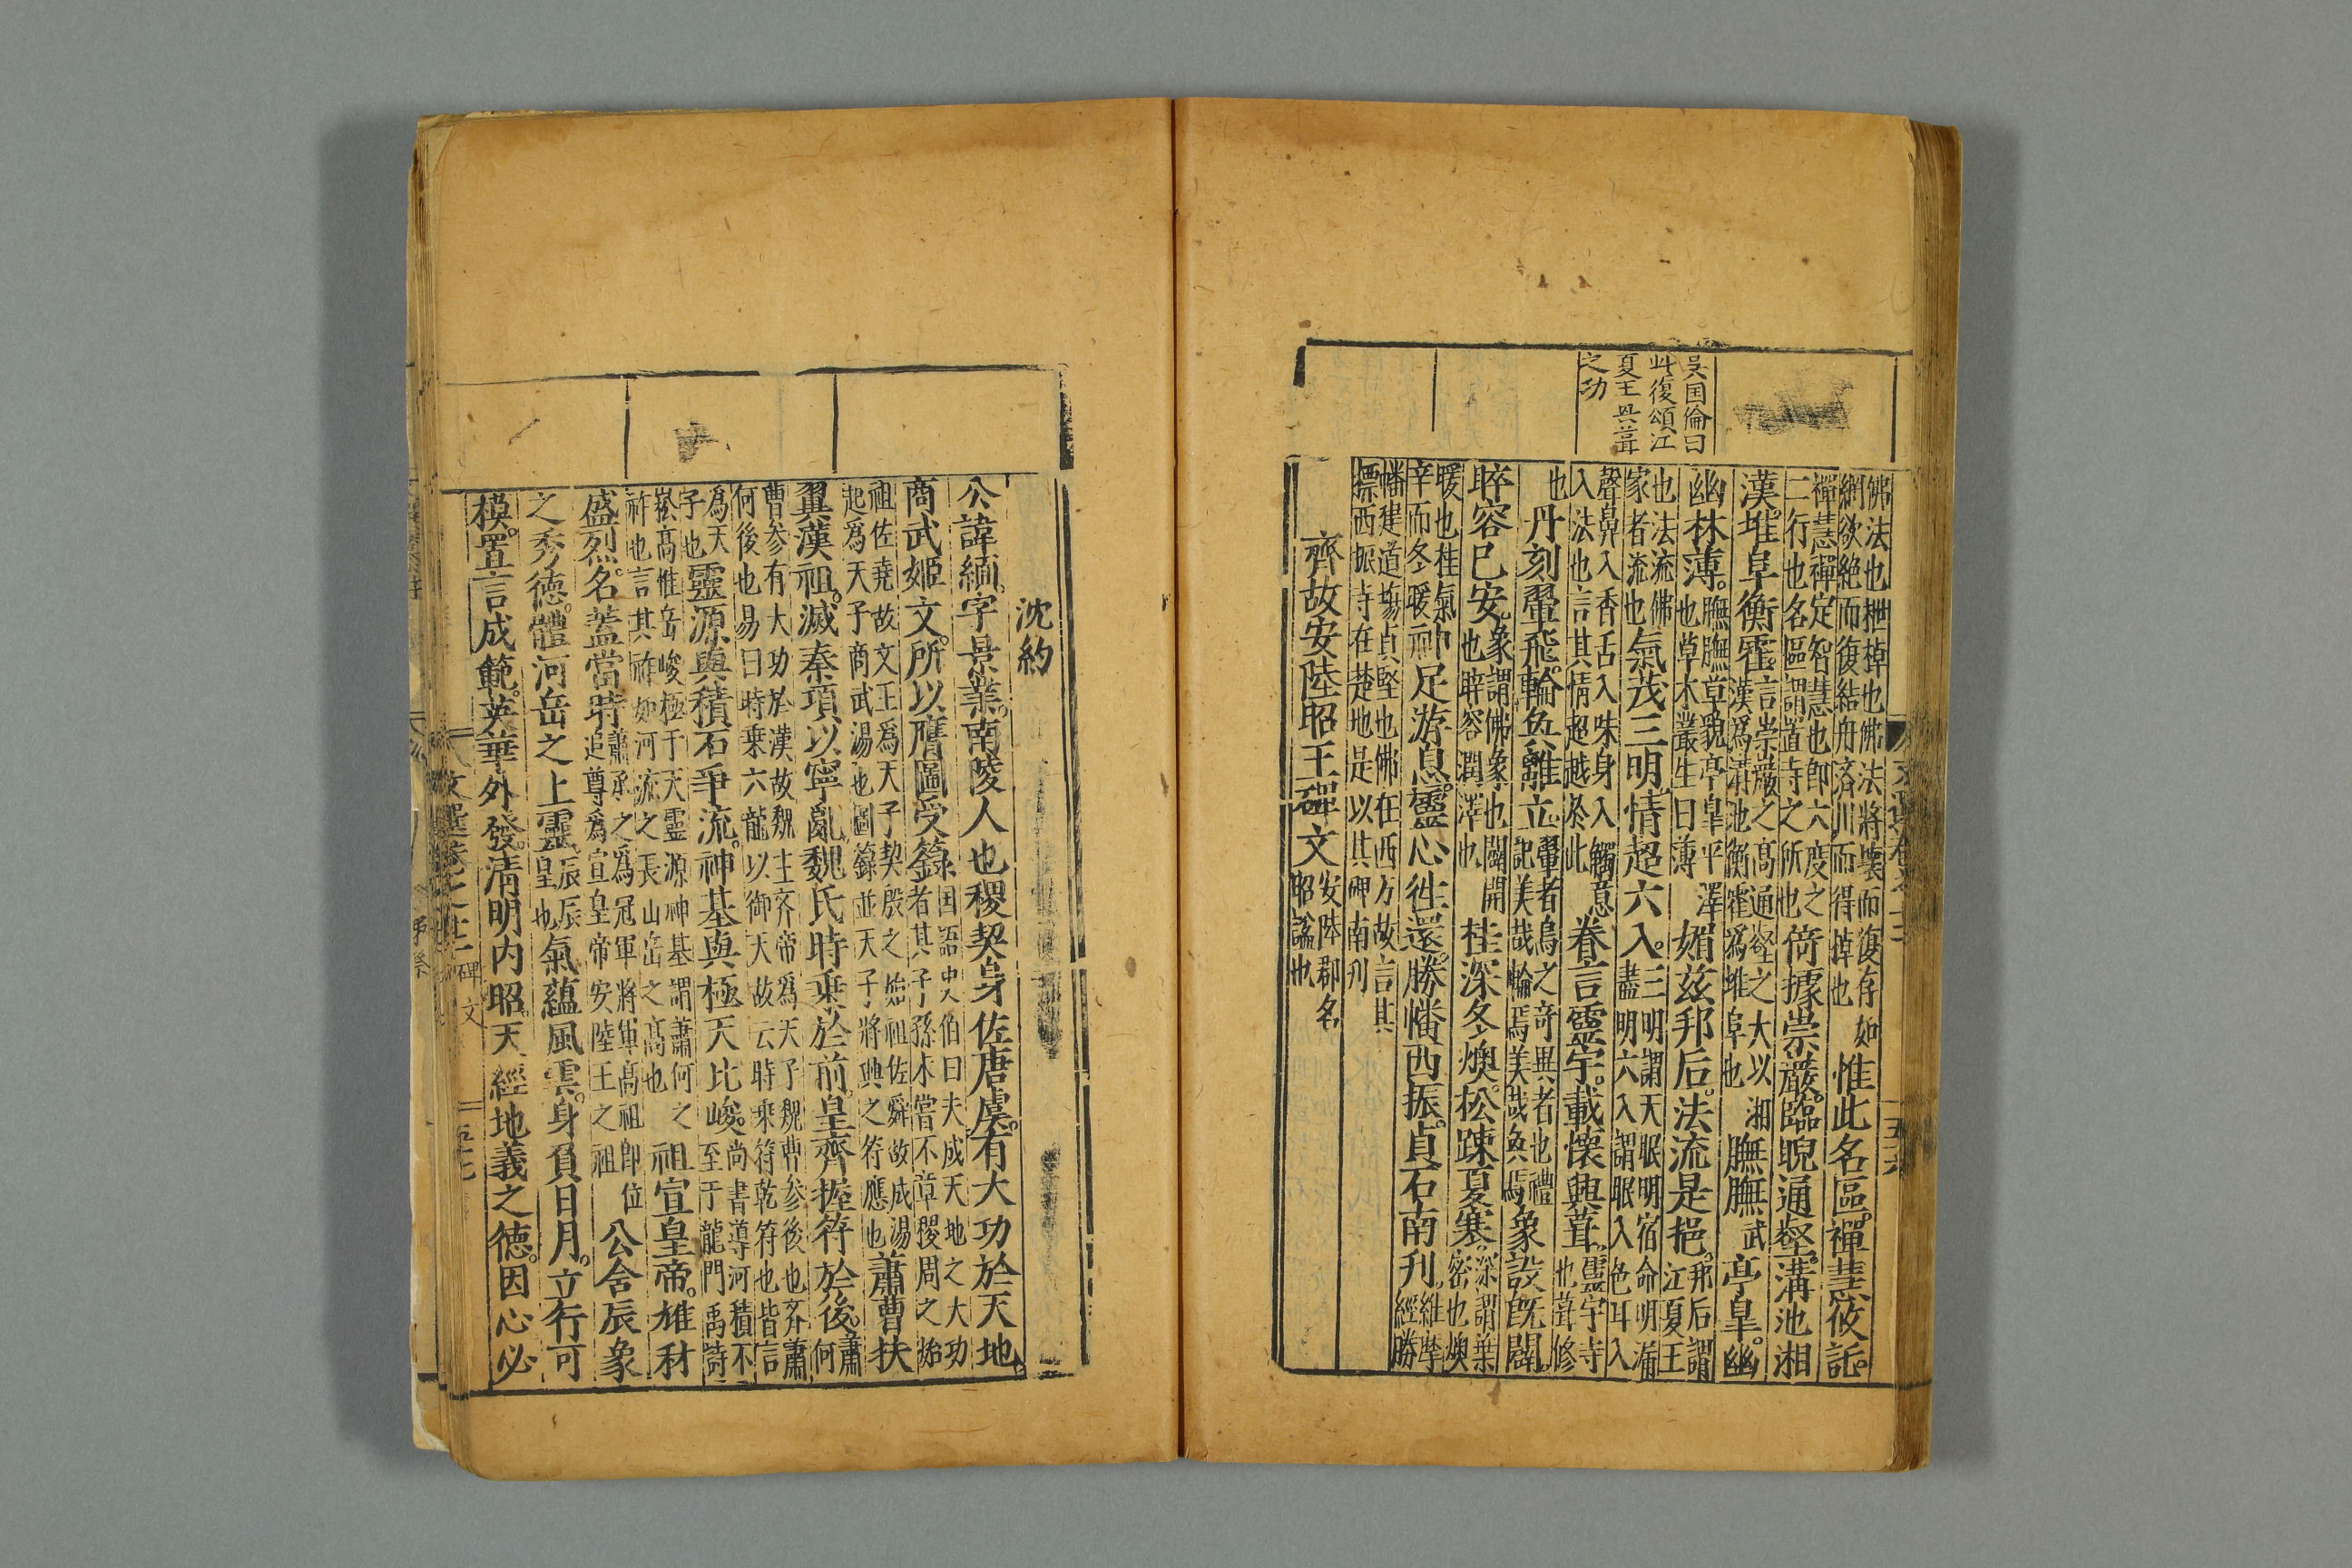 吳国倫曰
此復頌江
夏王㒷葺
之功
佛法也抴棹也佛法將壞而復存如
網欲絶而復結舟濟川而得棹也
惟此名區。禪慧攸託。
禪慧禪定智慧也即六度之
二行也名區謂道寺之所也
倚據崇巖。臨睨通壑。溝池湘
漢。堆阜衡霍。
言崇巖之高通壑之大以湘
漢爲溝池衡霍爲堆阜也
膴膴武亭皐。幽
幽林薄。
膴膴草貌亭皐平澤
也草木叢生曰薄
媚茲邦后。法流是挹。
邦后謂
江夏王
也法流佛
家者流也
氣茂三明。情超六入。
三明謂天眼明宿命明漏
盡明六入謂眼入色耳入
聲鼻入香舌入味身入觸意
入法也言其情超越於此
眷言靈宇。載懷興葺。
靈宇寺
也葺修
也
丹刻翬飛。輪奐離立。
翬者鳥之奇異者也禮
記美哉輪焉美哉奐焉
象設旣闢。
睟容巳安。
象謂佛象也闢開
也睟容潤澤也
桂深冬燠。松踈夏寒。
深謂葉
密也燠
暖也桂氣
辛而冬暖
神足游息。靈心徃還。勝幡西振。貞石南刋。
維摩
經勝
幡建道塲貞堅也佛在西方故言其
摽西振寺在楚地是以其碑南刋
齊故安陸昭王碑文
安陸郡名
昭諡也
沈約
公諱緬。字景業。南陵人也稷契身佐唐虞。有大功於天地。
商武姬文。所以膺圖受籙。
国語史伯曰夫成天地之大功
者其子孫未嘗不章稷周之始
祖佐堯故文王爲天子契殷之始祖佐舜故成湯
起爲天子商武湯也圖籙並天子將興之符應也
蕭曹扶
翼漢祖。滅秦項以寧亂。魏氏時乗於前。皇齊握符於後。
蕭
何
曹参有大功於漢故魏主齐帝爲天子魏曹参後也齐蕭
何後也易曰時乗六龍以御天故云時乗符乾符也皆言
爲天
子也
靈源與積石爭流。神基與極天比峻。
尚書導河積石
至于龍門禹詩
崧高惟岳峻極于天靈源神基謂蕭何之
祚也言其祚如河流之長山岳之高也
祖宣皇帝。雄材
盛烈。名蓋當時。
蕭承之爲冠軍將軍高祖即位
追尊爲宣皇帝安陸王之祖
公含辰象
之秀德。體河岳之上靈。
辰辰
皇也
氣蘊風雲。身負日月。立行可
模。置言成範。英華外發。清明内昭。天經地義之德。因心必
文選卷之廿二
碑文
五七
五六